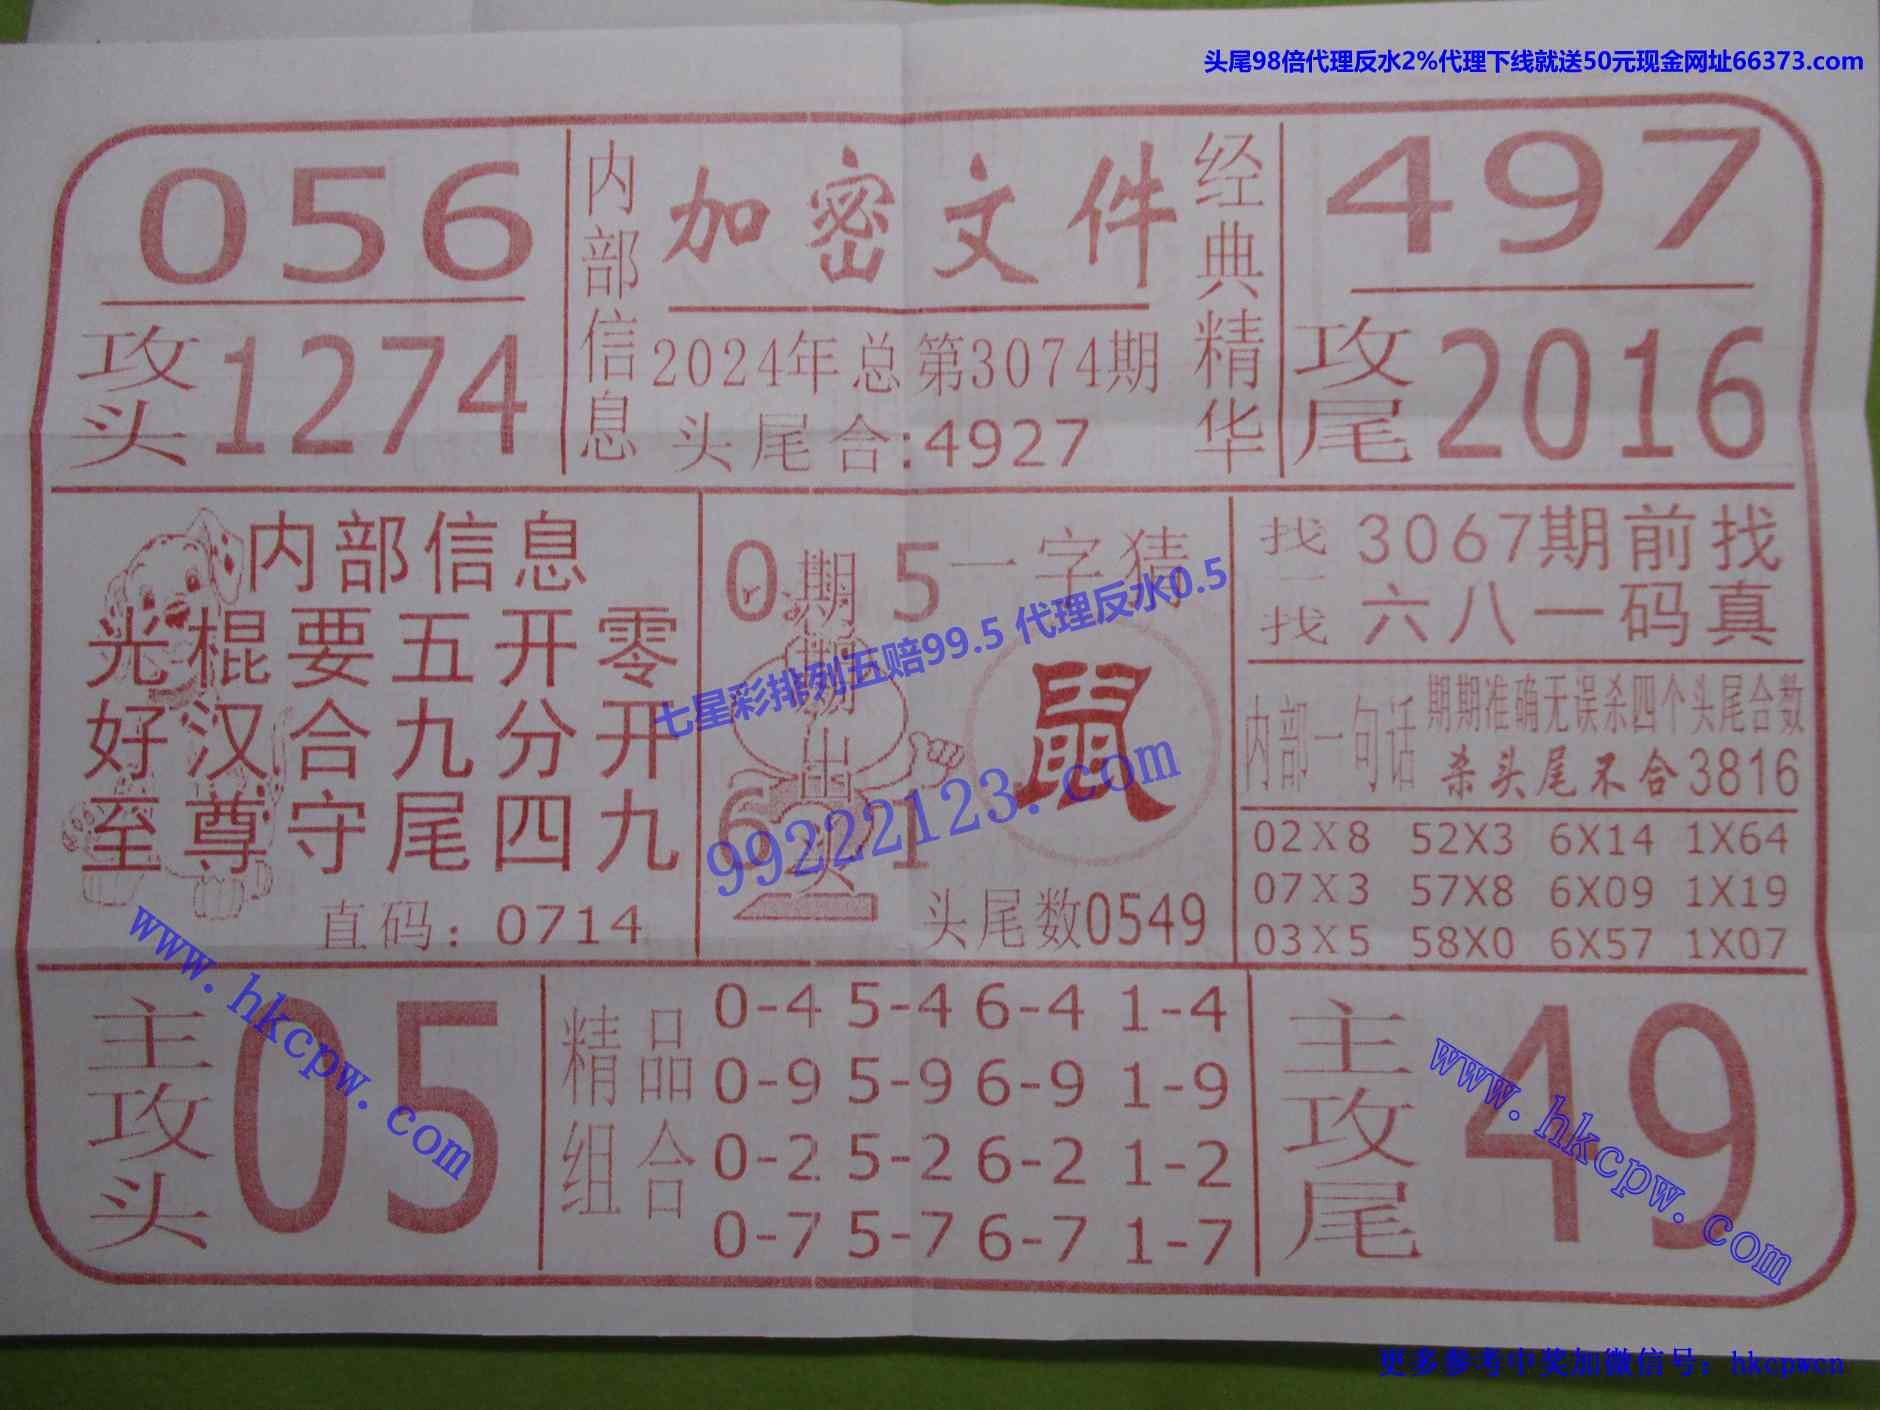 头尾98倍代理反水2%代理下线就送50元现金网址66373.com
056
攻头 1274
内部信息
加密文件
2024年总第3074期
头尾合:4927
经典精华
497
攻尾 2016
内部信息
光棍要五开零
好汉合九分开
至尊守尾四九
直码：0714
0 5
期期出头
6 1
一字猜
鼠
头尾数0549
找一找
3067期前找
六八一码真
内部一句话
期期准确无误杀四个头尾合数
杀头尾不合3816
02X8 52X3 6X14 1X64
07X3 57X8 6X09 1X19
03X5 58X0 6X57 1X07
七星彩排列五赔99.5 代理反水0.5
99222123.com
www.hkcpw.com
主攻头 05
精品组合
0-4 5-4 6-4 1-4
0-9 5-9 6-9 1-9
0-2 5-2 6-2 1-2
0-7 5-7 6-7 1-7
主攻尾 49
www.hkcpw.com
更多参考中奖加微信号：hkcpwcn